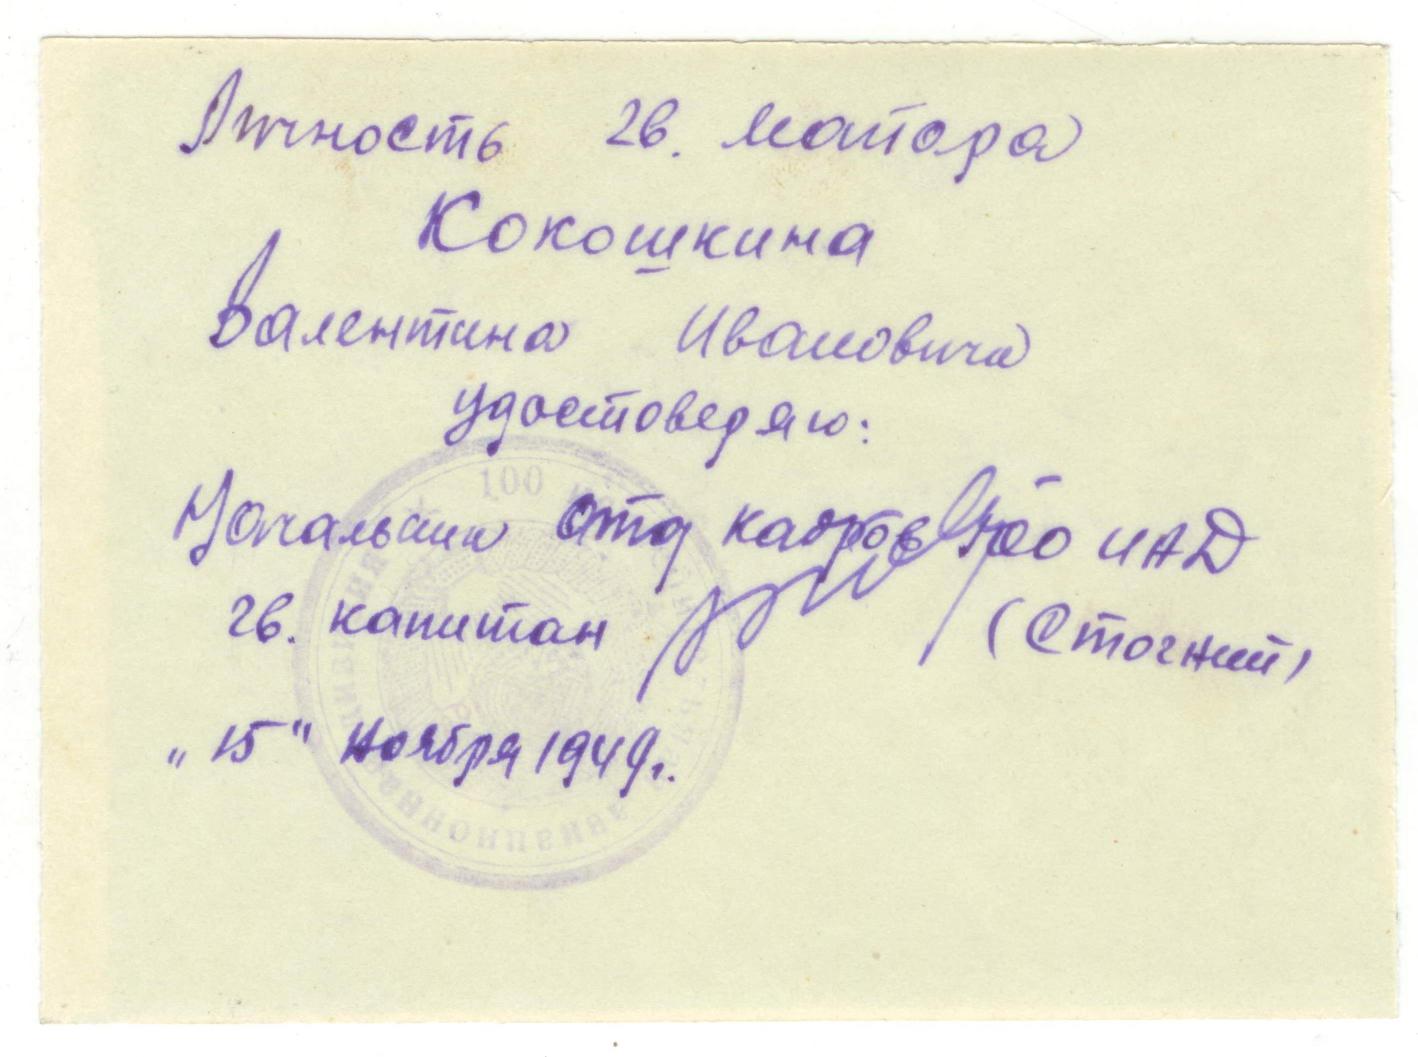 Личность гв. майора
Кокошкина
Валентина Ивановича
удостоверяю:
Начальник отд кадров 100 ИАД
гв. капитан (Стогний)
„15" ноября 1949г.
100
авиационная дивизия